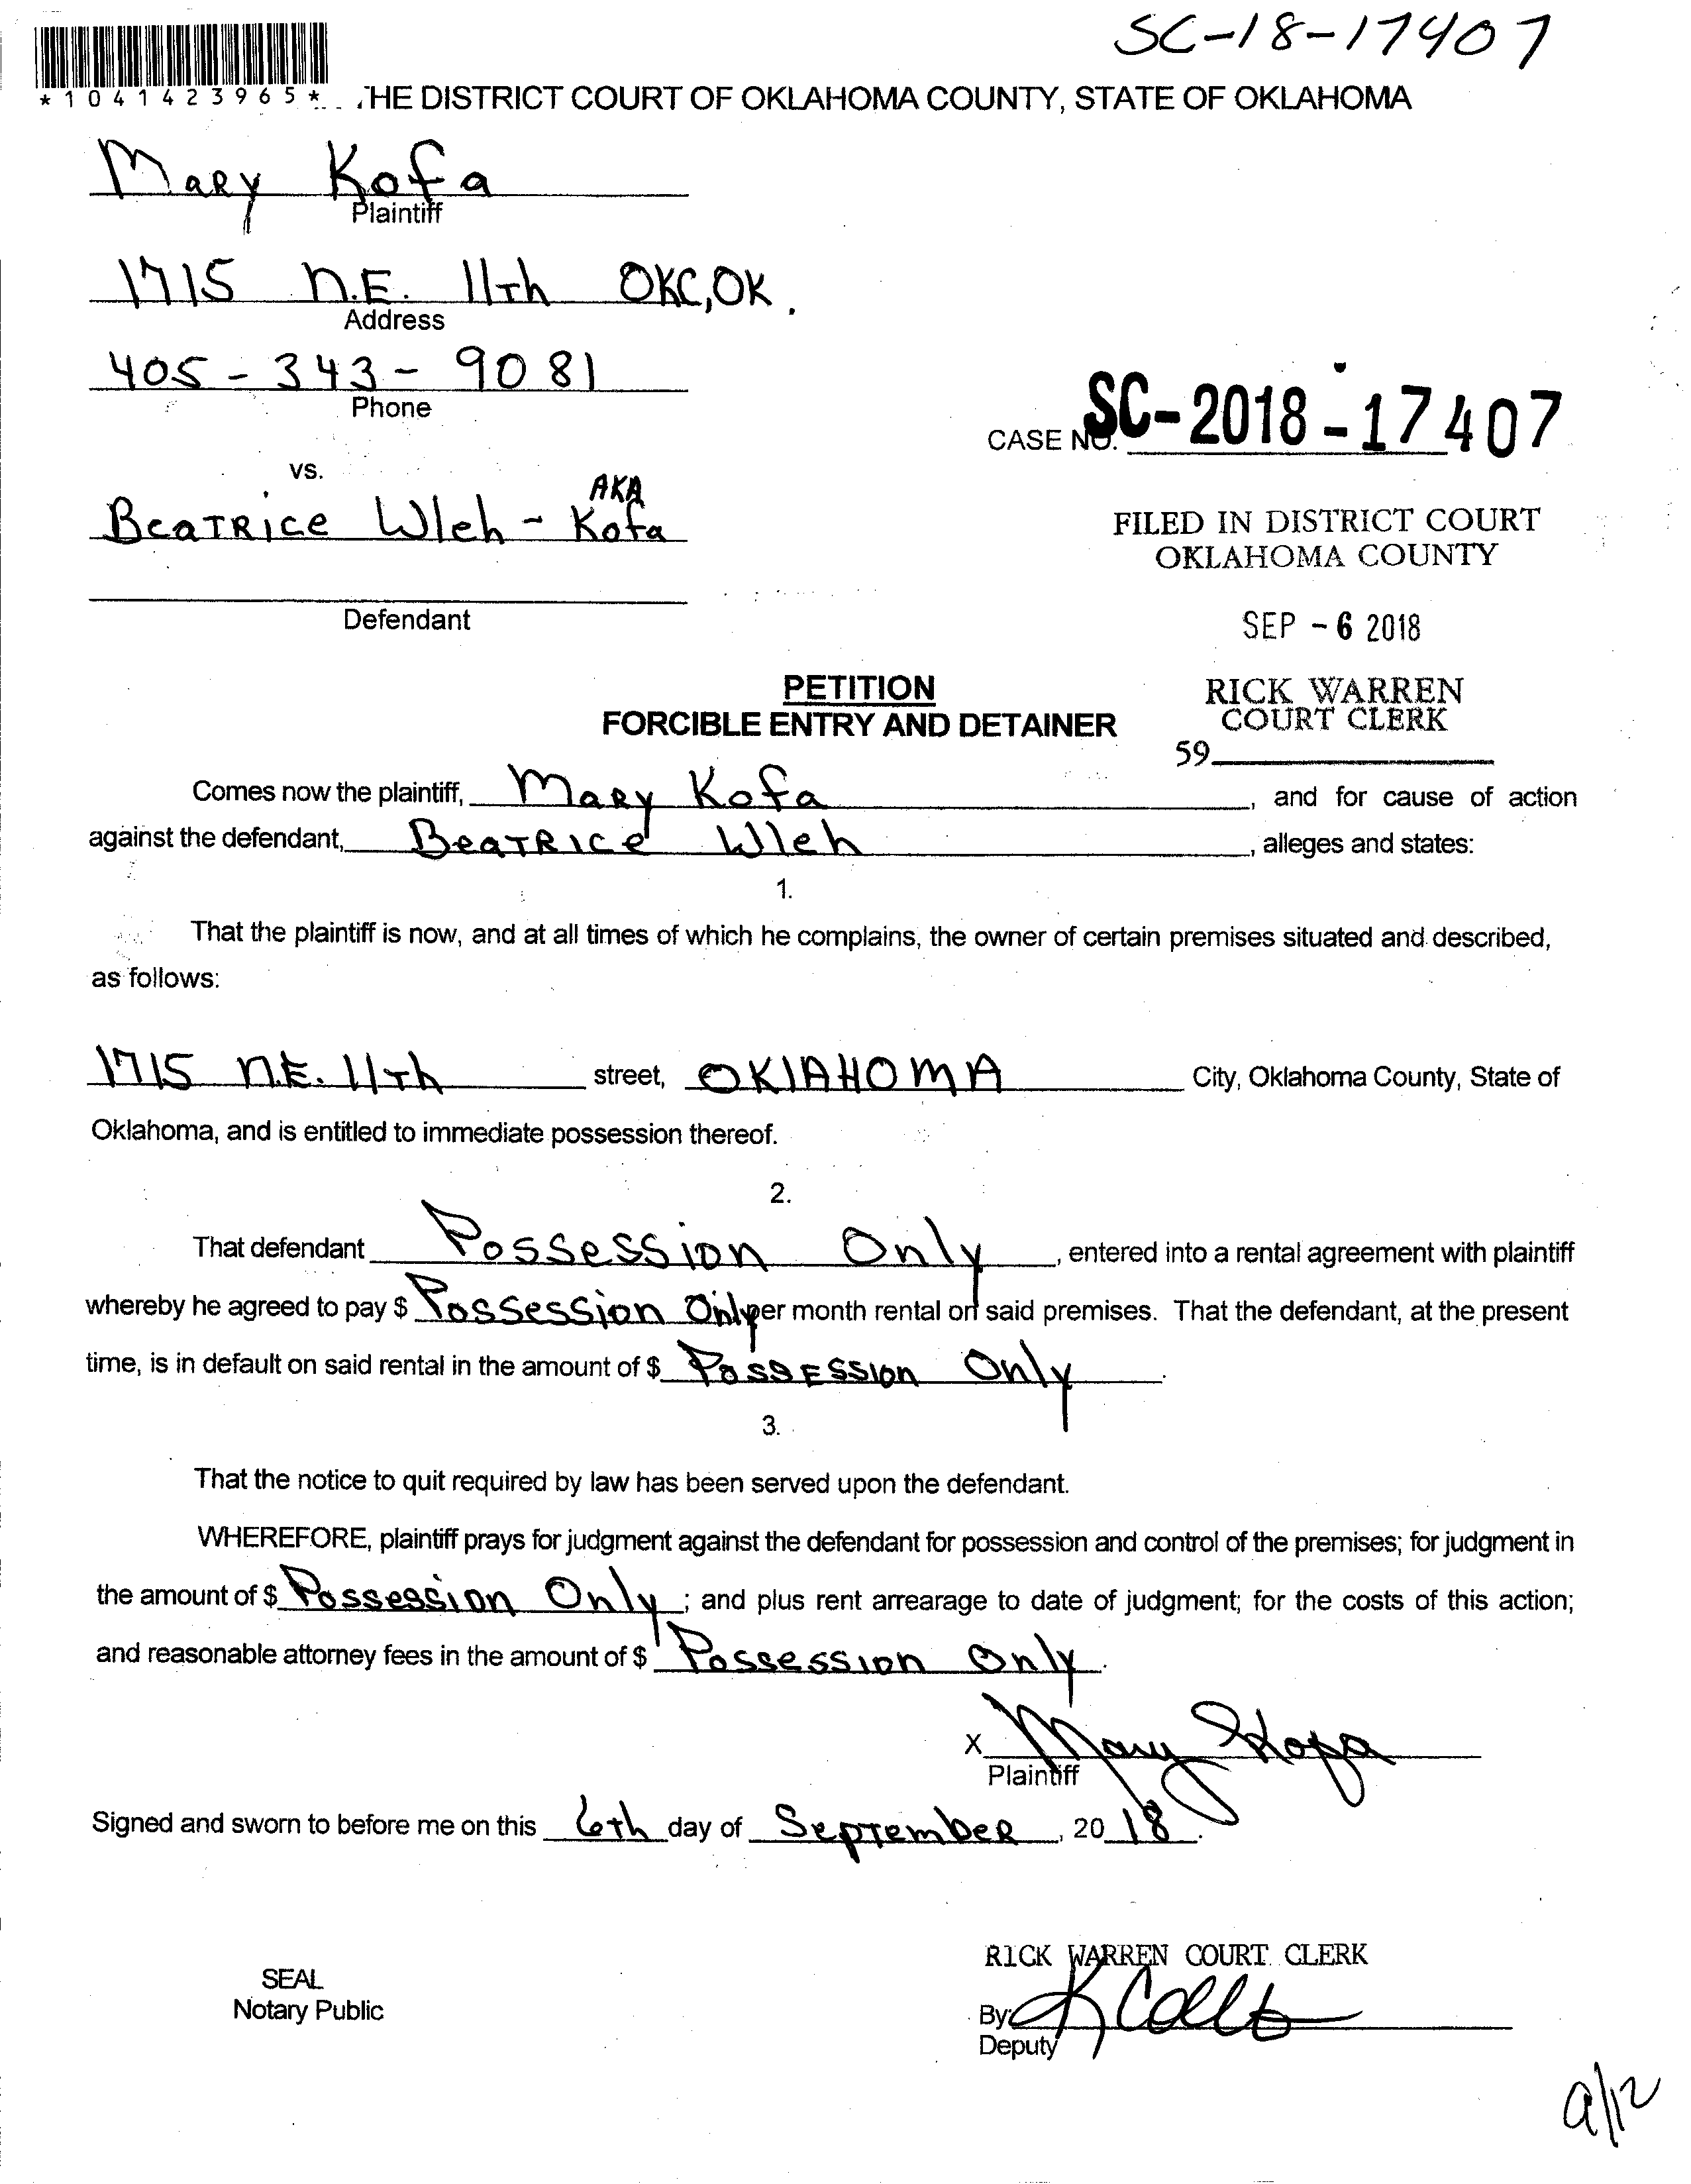 SC-18-17407
*1041423965* THE DISTRICT COURT OF OKLAHOMA COUNTY, STATE OF OKLAHOMA
Mary Kofa
Plaintiff
1715 N.E. 11th OKC, OK.
Address
405-343-9081
Phone
CASE NO. SC-2018-17407
vs.
AKA
Beatrice Wleh - Kofa
FILED IN DISTRICT COURT
OKLAHOMA COUNTY
Defendant
SEP -6 2018
PETITION
FORCIBLE ENTRY AND DETAINER
RICK WARREN
COURT CLERK
59
Comes now the plaintiff, Mary Kofa, and for cause of action
against the defendant, Beatrice Wleh, alleges and states:
1.
That the plaintiff is now, and at all times of which he complains, the owner of certain premises situated and described,
as follows:
1715 N.E. 11th street, OKlAHOMA City, Oklahoma County, State of
Oklahoma, and is entitled to immediate possession thereof.
2.
That defendant Possession Only, entered into a rental agreement with plaintiff
whereby he agreed to pay $ Possession Only per month rental on said premises. That the defendant, at the present
time, is in default on said rental in the amount of $ Possession Only.
3.
That the notice to quit required by law has been served upon the defendant.
WHEREFORE, plaintiff prays for judgment against the defendant for possession and control of the premises; for judgment in
the amount of $ Possession Only; and plus rent arrearage to date of judgment; for the costs of this action;
and reasonable attorney fees in the amount of $ Possession Only.
X Mary Kofa
Plaintiff
Signed and sworn to before me on this 6th day of September, 2018.
RICK WARREN COURT CLERK
SEAL
Notary Public
By:
Deputy
9/12